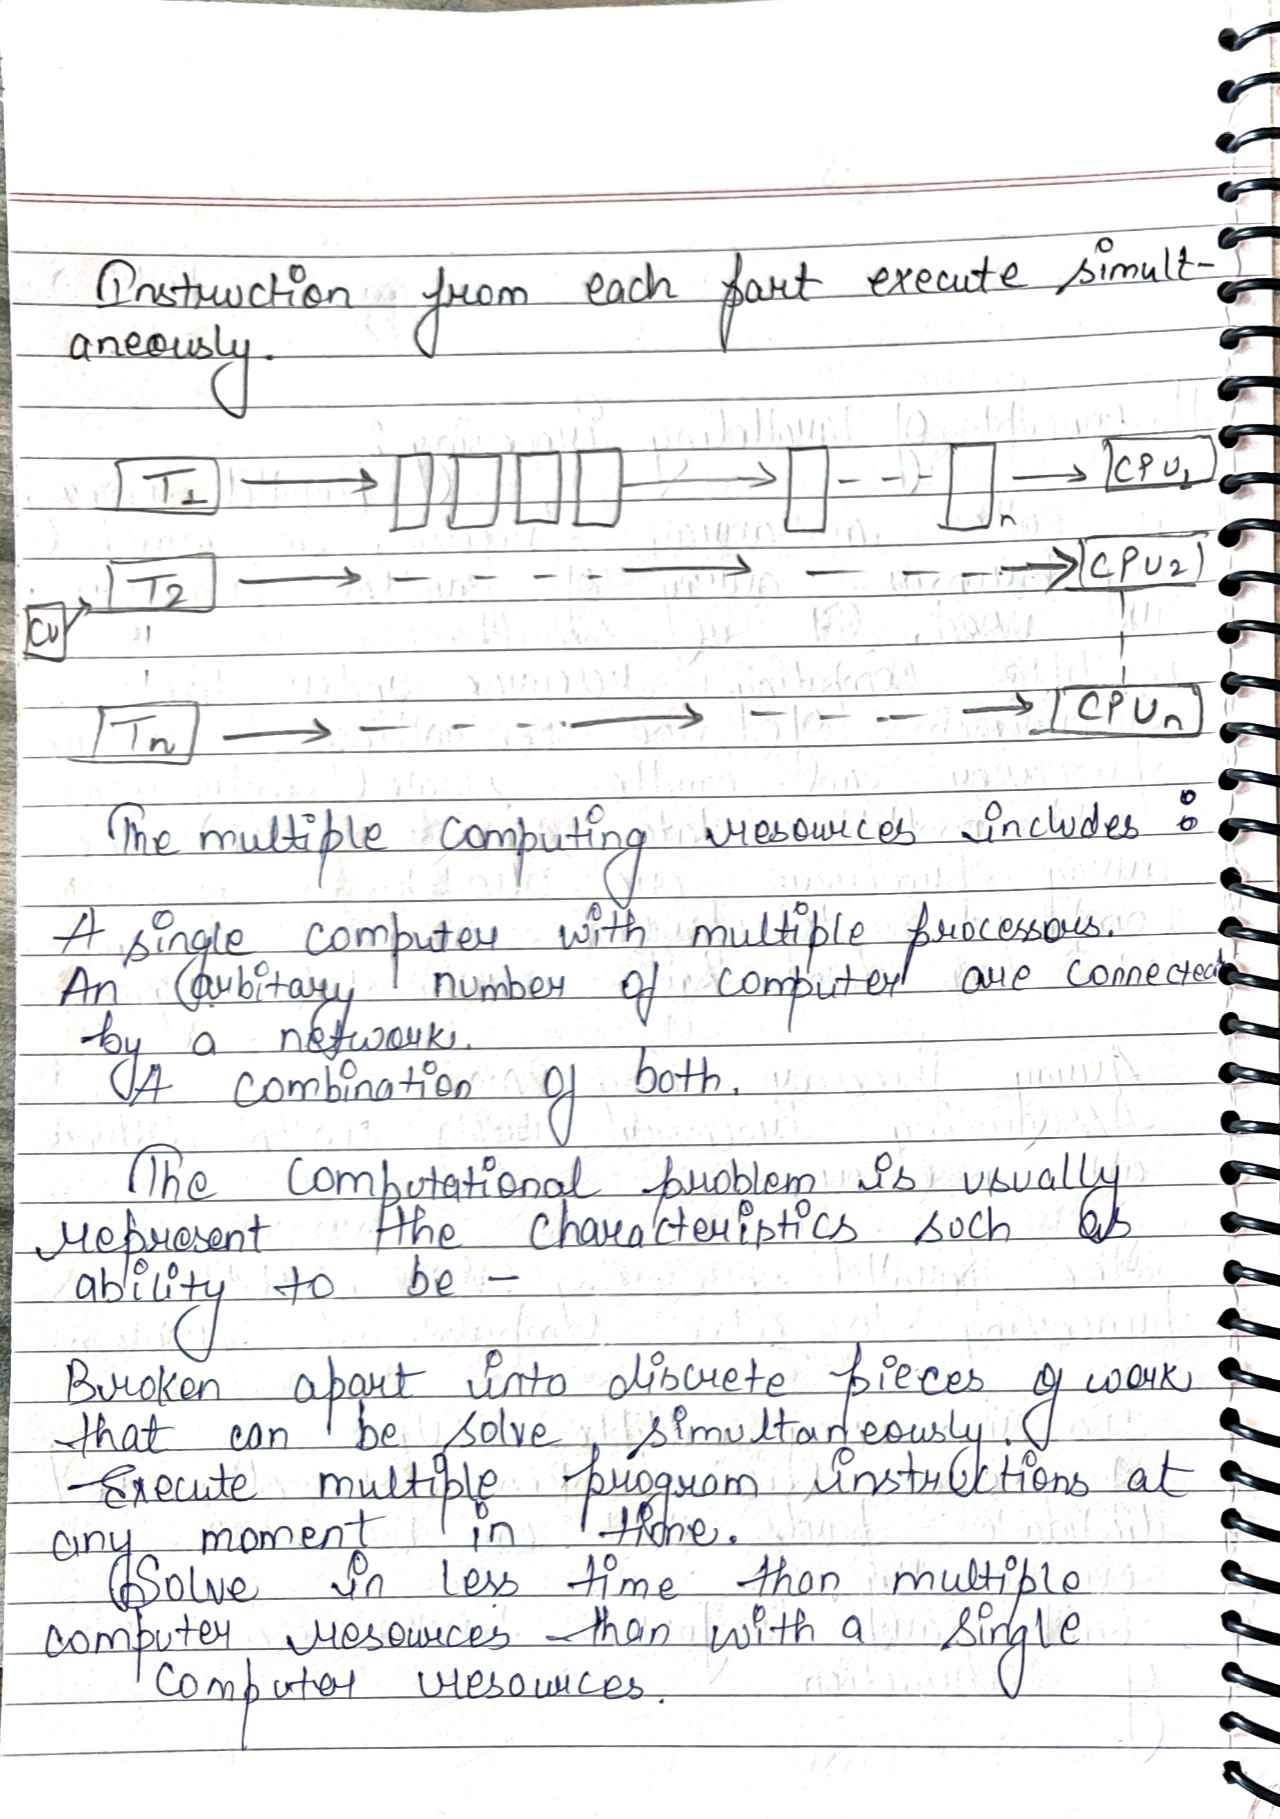 Instruction from each part execute simult-
aneously.
T1 CPU1
n
T2 CPU2
CU
Tn CPUn
The multiple computing resources includes :
A single computer with multiple processors.
An arbitary number of computer are connected
by a network.
A combination of both.
The computational problem is usually
represent the characteristics such as
ability to be -
Broken apart into discrete pieces of work
that can be solve simultaneously.
- Execute multiple program instructions at
any moment in time.
Solve in less time than multiple
computer resources than with a single
computer resources.